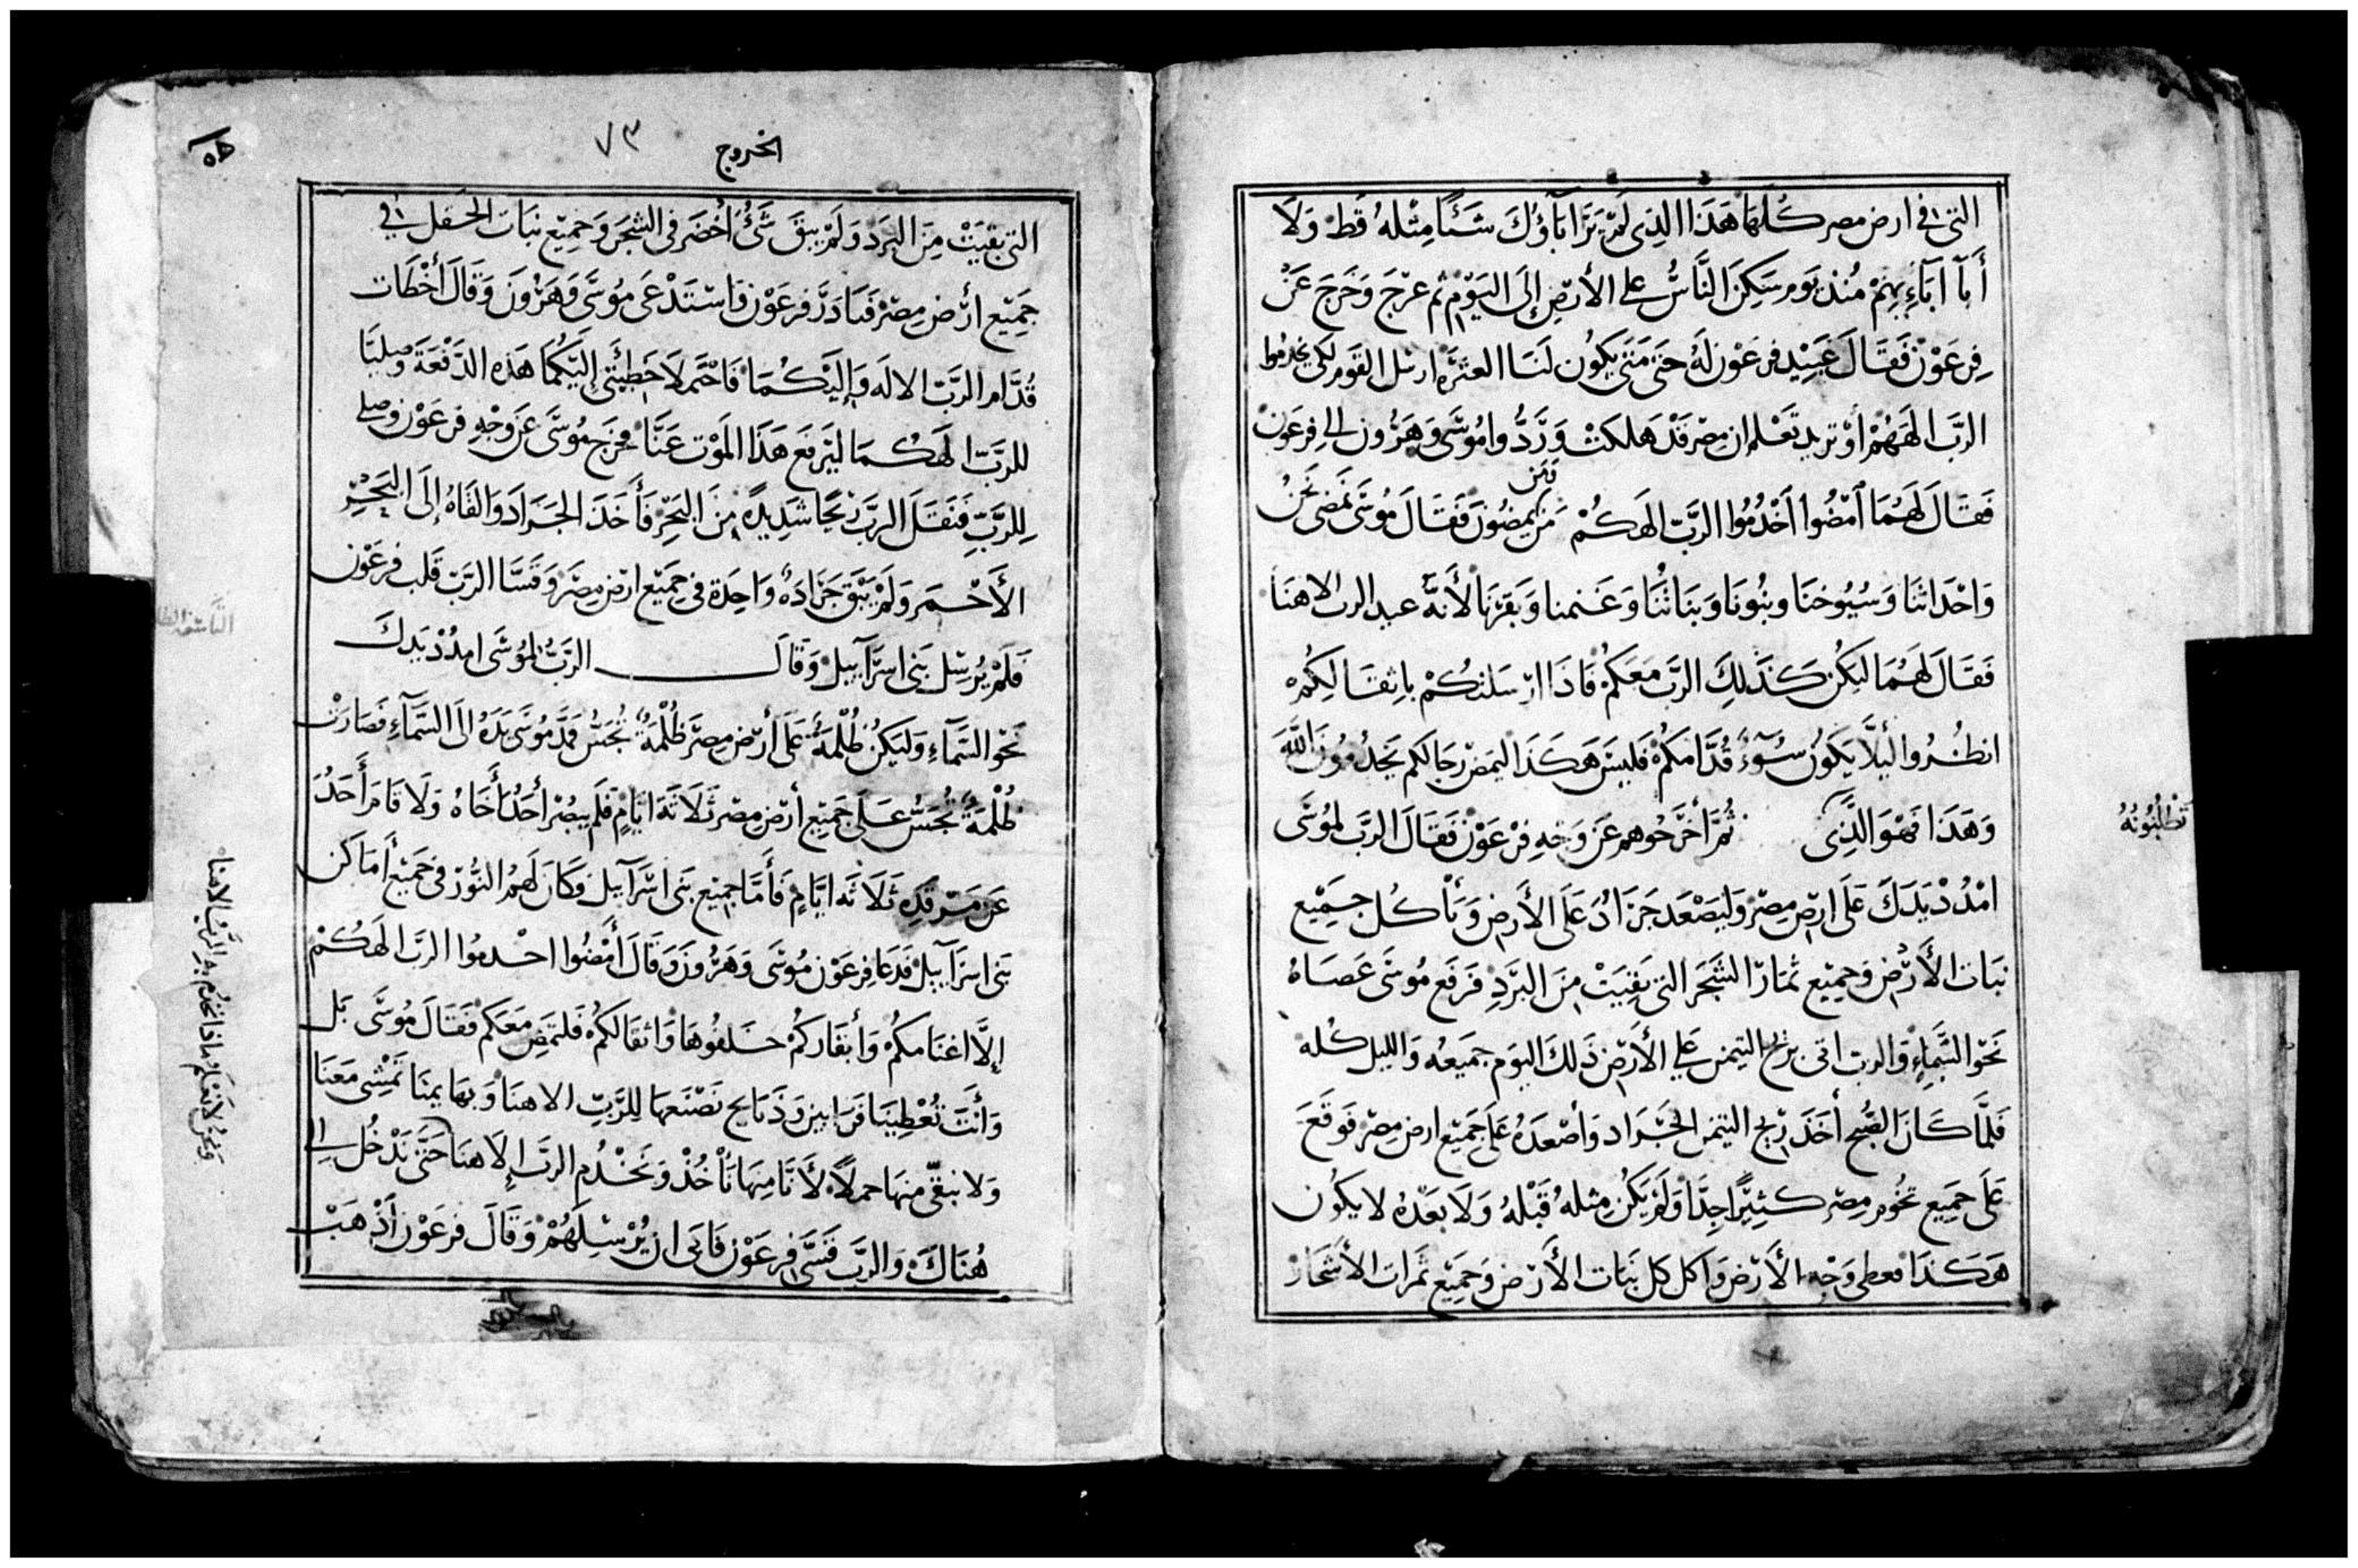 التى فى ارض مصر كلها هَذَا الذِى لَمْ يَرَا آبَاؤُكَ شَئًا مِثْلهُ قَط وَلَا
أَبآ آبَآءِيهِمْ مُنْذ يَوم سَكِنَ النَّاسُ على الأرْضِ إِلَى اليَوْمِ ثم عرْجَ وَخَرَجَ عَنْ
فِرعَوْنْ فَقَالَ عَبِيْد فرعَوْن لَهُ حَتَّى مَتَى يَكوُن لَنَا العثرَه ارسْل القَوم لكى يخدمُوا
الرَّبَ الهَهُمْ أوْ تريد تَعْلم ان مِصْر قدْ هلكتْ وَرَدُّوا مُوسَى وَهَرُون الى فِرعَوْن
فَقَالَ لَهُمَا اَمْضُوا اَخْدُمُوا الرَّبَ الهَكُمْ وَمَن مَن يمضُونَ فَقَالَ مُوسَى نمضى نَحْنُ
وَاحْدَاثنَا وَشُيُوخنَا وبنُونَا وَبنَاتْنَا وَغَنمنا وَبَقرْنَا لأَنهُ عيد الرب الاهنَا
فَقَالَ لَهُمَا ليَكُنْ كَذَلِكَ الرَّب مَعَكمُ فَاذَا ارْسَلتكُمْ باثقَالِكُمْ
انظُرُوا لَيلَّا يَكُونُ سُوءٌ قُدَّامَكُمْ فَليسَ هَكَذَا ليَمض رجَالكم يَخدُمُونَ اللَّهَ
وَهَذَا فهْوَ الذِى ثُمَّ أخرَجُوهم عَنْ وَجْهِ فرْعَوْن فَقَالَ الرَّبَ لمُوسَى
تَطْلبُونَهُ
امْدُدْ يَدَكَ عَلَى ارْضِ مِصْرَ وَليَصْعَد جَرَادُ عَلَى الأَرضِ وَيَأكُل جَمِيْع
نبَات الأَرْضِ وَجميْع ثمَارْ الشجَر التى بَقِيَتْ مِنَ البَرَدِ فَرَفَع مُوسَى عَصَاهُ
نَحْوَ السَّمَاءِ وَالرب اتى بريْح التيمن على الأَرْض ذَلكَ اليوَم جميَعهُ وَالليل كله
فَلَمَّا كَانَ الصُّبح أخَذَ رِيْح التيمن الجَرَاد وَأصْعدَهُ عَلَى جَمِيْع ارض مِصْر فَوقَعَ
عَلَى جميع تخُوم مِصْر كَثِيرًا جِدًّا وَلَمْ يَكُنْ مِثلهُ قَبْلهُ وَلَا بَعْدَهُ لا يَكوُن
هَكَذَا فعطى وَجْه الأَرْض وَاكل كل نَبَات الأَرْض وَجَميْع ثَمرات الأَشجَار
الخروج ٧٣
التى بقيَتْ مِنَ البَرد وَلَمْ يبقَ شَىُ أَخْضَر فى الشجَر وَجَمِيْع نبَات الحقل فى
جَمِيْع أرْض مِصْر فَبَادَرَ فرعَوْن فَاسْتدْعَى مُوسَى وَهَرُونَ وَقَالَ أخْطَات
قُدَّام الرَّبَ الالَه وَإليْكُمَا فَاحْتملَا خَطِيْئَتى إِليَكُمَا هَذه الدَّفْعَةَ وَصَليَا
للرَبِّ الهَكُمَا ليَرفَع هَذَا المَوْت عَنَّا فخرَج مُوسَى عَن وَجْهِ فرعَوْن وَصلى
لِلرَّبِّ فَنَقَلَ الرَّبَ رِيْحًا شَدِيْدٍة مِنَ البَحْر فَأَخَذَ الجَرَادَ وَالقَاهُ إِلَى البَحْر
الأَحْمَر وَلَمْ يَبْقَ جَرَادَةُ وَاحِدَة فى جَميْع ارْض مِصْر وَقَسَّا الرَّبْ قَلب فرعَوْن
فَلَمْ يُرسِل بَنى اسرَآييل وَقَالَ الرَّبُ لمُوسَى امدُدْ يَدكَ
نَحْو السَّمَآءِ وَليَكُنْ ظُلْمَةُ عَلَى أرْض مِصْر ظُلْمَةُ تُجَسُّ فَمَدَّ مُوسَى يَدَهُ الَى السَّمَآءِ فَصَارَتْ
ظُلْمَةُ تُجَسُّ عَلَى جَميْع أرْض مِصْر ثَلَاثةَ ايَّامٍ فَلَم يبْصُر أَحَدُ أَخَاهُ وَلَا قَامَ أَحَدُ
عَن مَرْقَدِه ثَلَاثَه ايَّامٍ فَأَمَّا جميْع بَنى اسْرَآييل فكَانَ لَهمُ النُّوْرْ فى جَميْع أمَاكن
بَنى اسرَآييل فَدَعَا فِرعَوْن مُوسَى وَهَرُونَ وَقَالَ أَمْضُوا اخْدمُوا الرَبَ الهَكُمْ
إلَّا اغنَامكُمْ وَأبقَاركُمْ خَلفُوهَا وَاثقالكمُ فَلتَمْضِ مَعَكم فَقَالَ مُوسَى بَل
وَأَنتَ تُعْطِيَنا قَرَابين وَذَبَايح نَصْنَعهَا للرَّبِّ الاهنَا وَبهَايمنَا تَمْشِى مَعَنَا
وَلا نبقى منهَا حملاً لأَنَّا مِنهَا نَأخُذْ وَنَخْدُم الرَبَ إلَاهنَا حَتَّى نَدْخُل الى
هُنَاكَ وَالرَبَ قَسَّى فرعَوْن فَابَى ان يُرْسِلَهُمْ وَقَالَ فرعَوْن أَذْهَبْ
وَنحنُ لَا نَعْلم ماذا نخدُم به الرَّبُ الاهنا